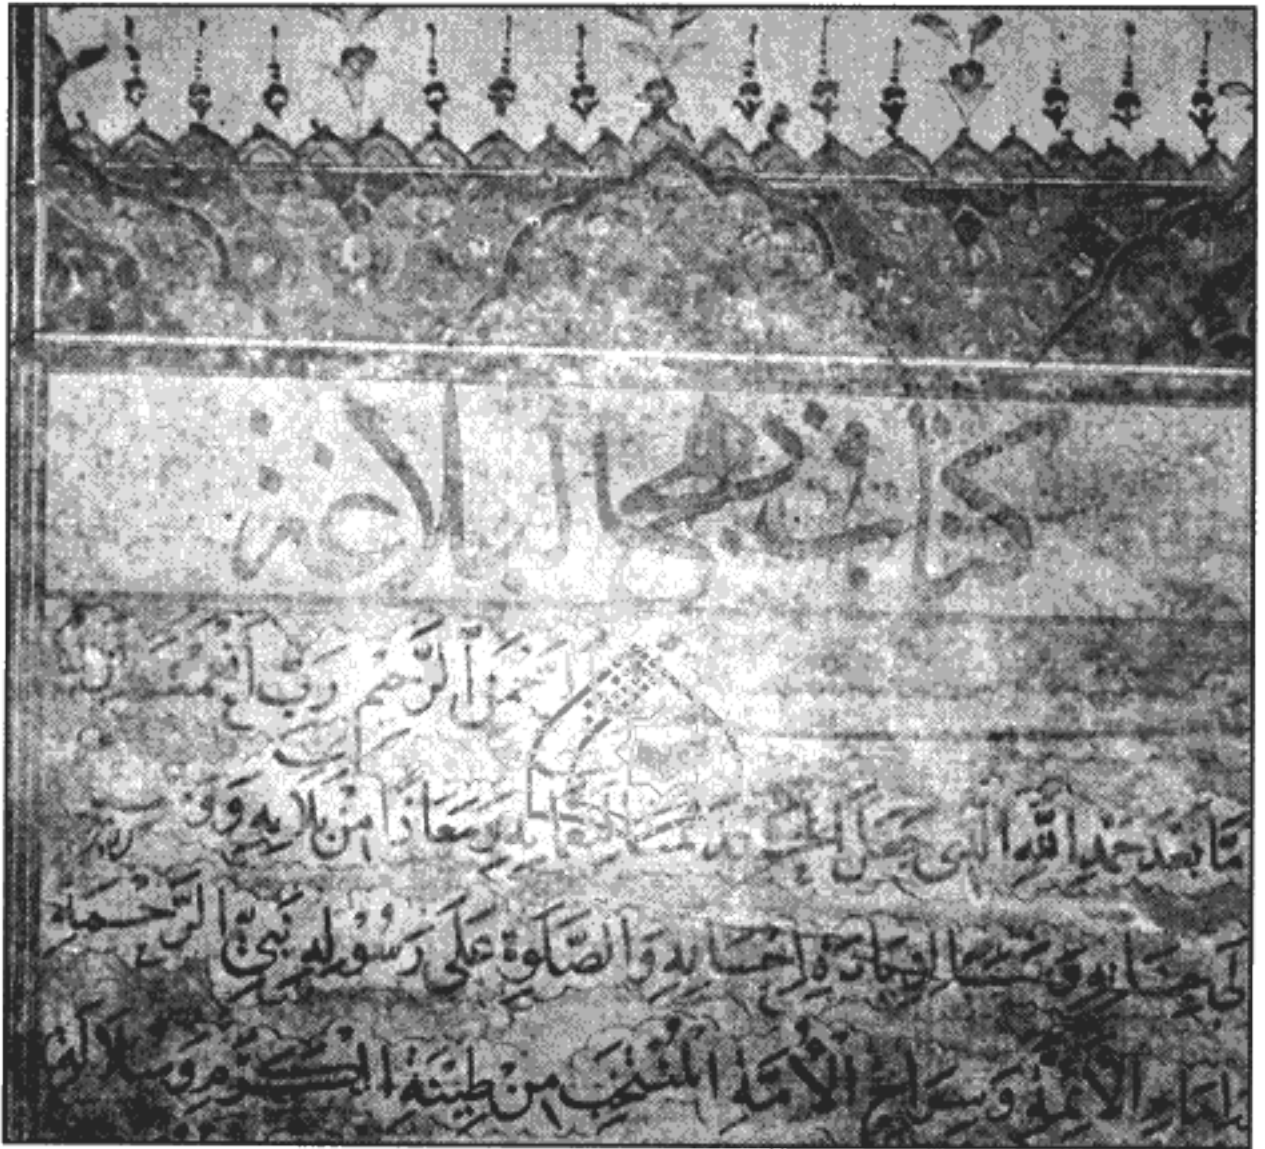 كتاب نهج البلاغة
الرَّحْمٰنِ الرَّحِيْمِ رَبِّ
مَّا بَعْدَ حَمْدِ اللّٰهِ الَّذِى جَعَلَ الْحَمْدَ ثَمَنًا لِنَعْمَائِهِ وَمَعَاذًا مِنْ بَلَايِهِ وَ
اِلٰى جِنَانِهِ وَسَبَبًا لِزِيَادَةِ اِحْسَانِهِ وَالصَّلٰوةِ عَلٰى رَسُوْلِهِ نَبِىِّ الرَّحْمَةِ
وَاِمَامِ الْاَئِمَّةِ وَسِرَاجِ الْاُمَّةِ الْمُنْتَخَبِ مِنْ طِيْنَةِ الْكَرَمِ وَسُلَالَةِ